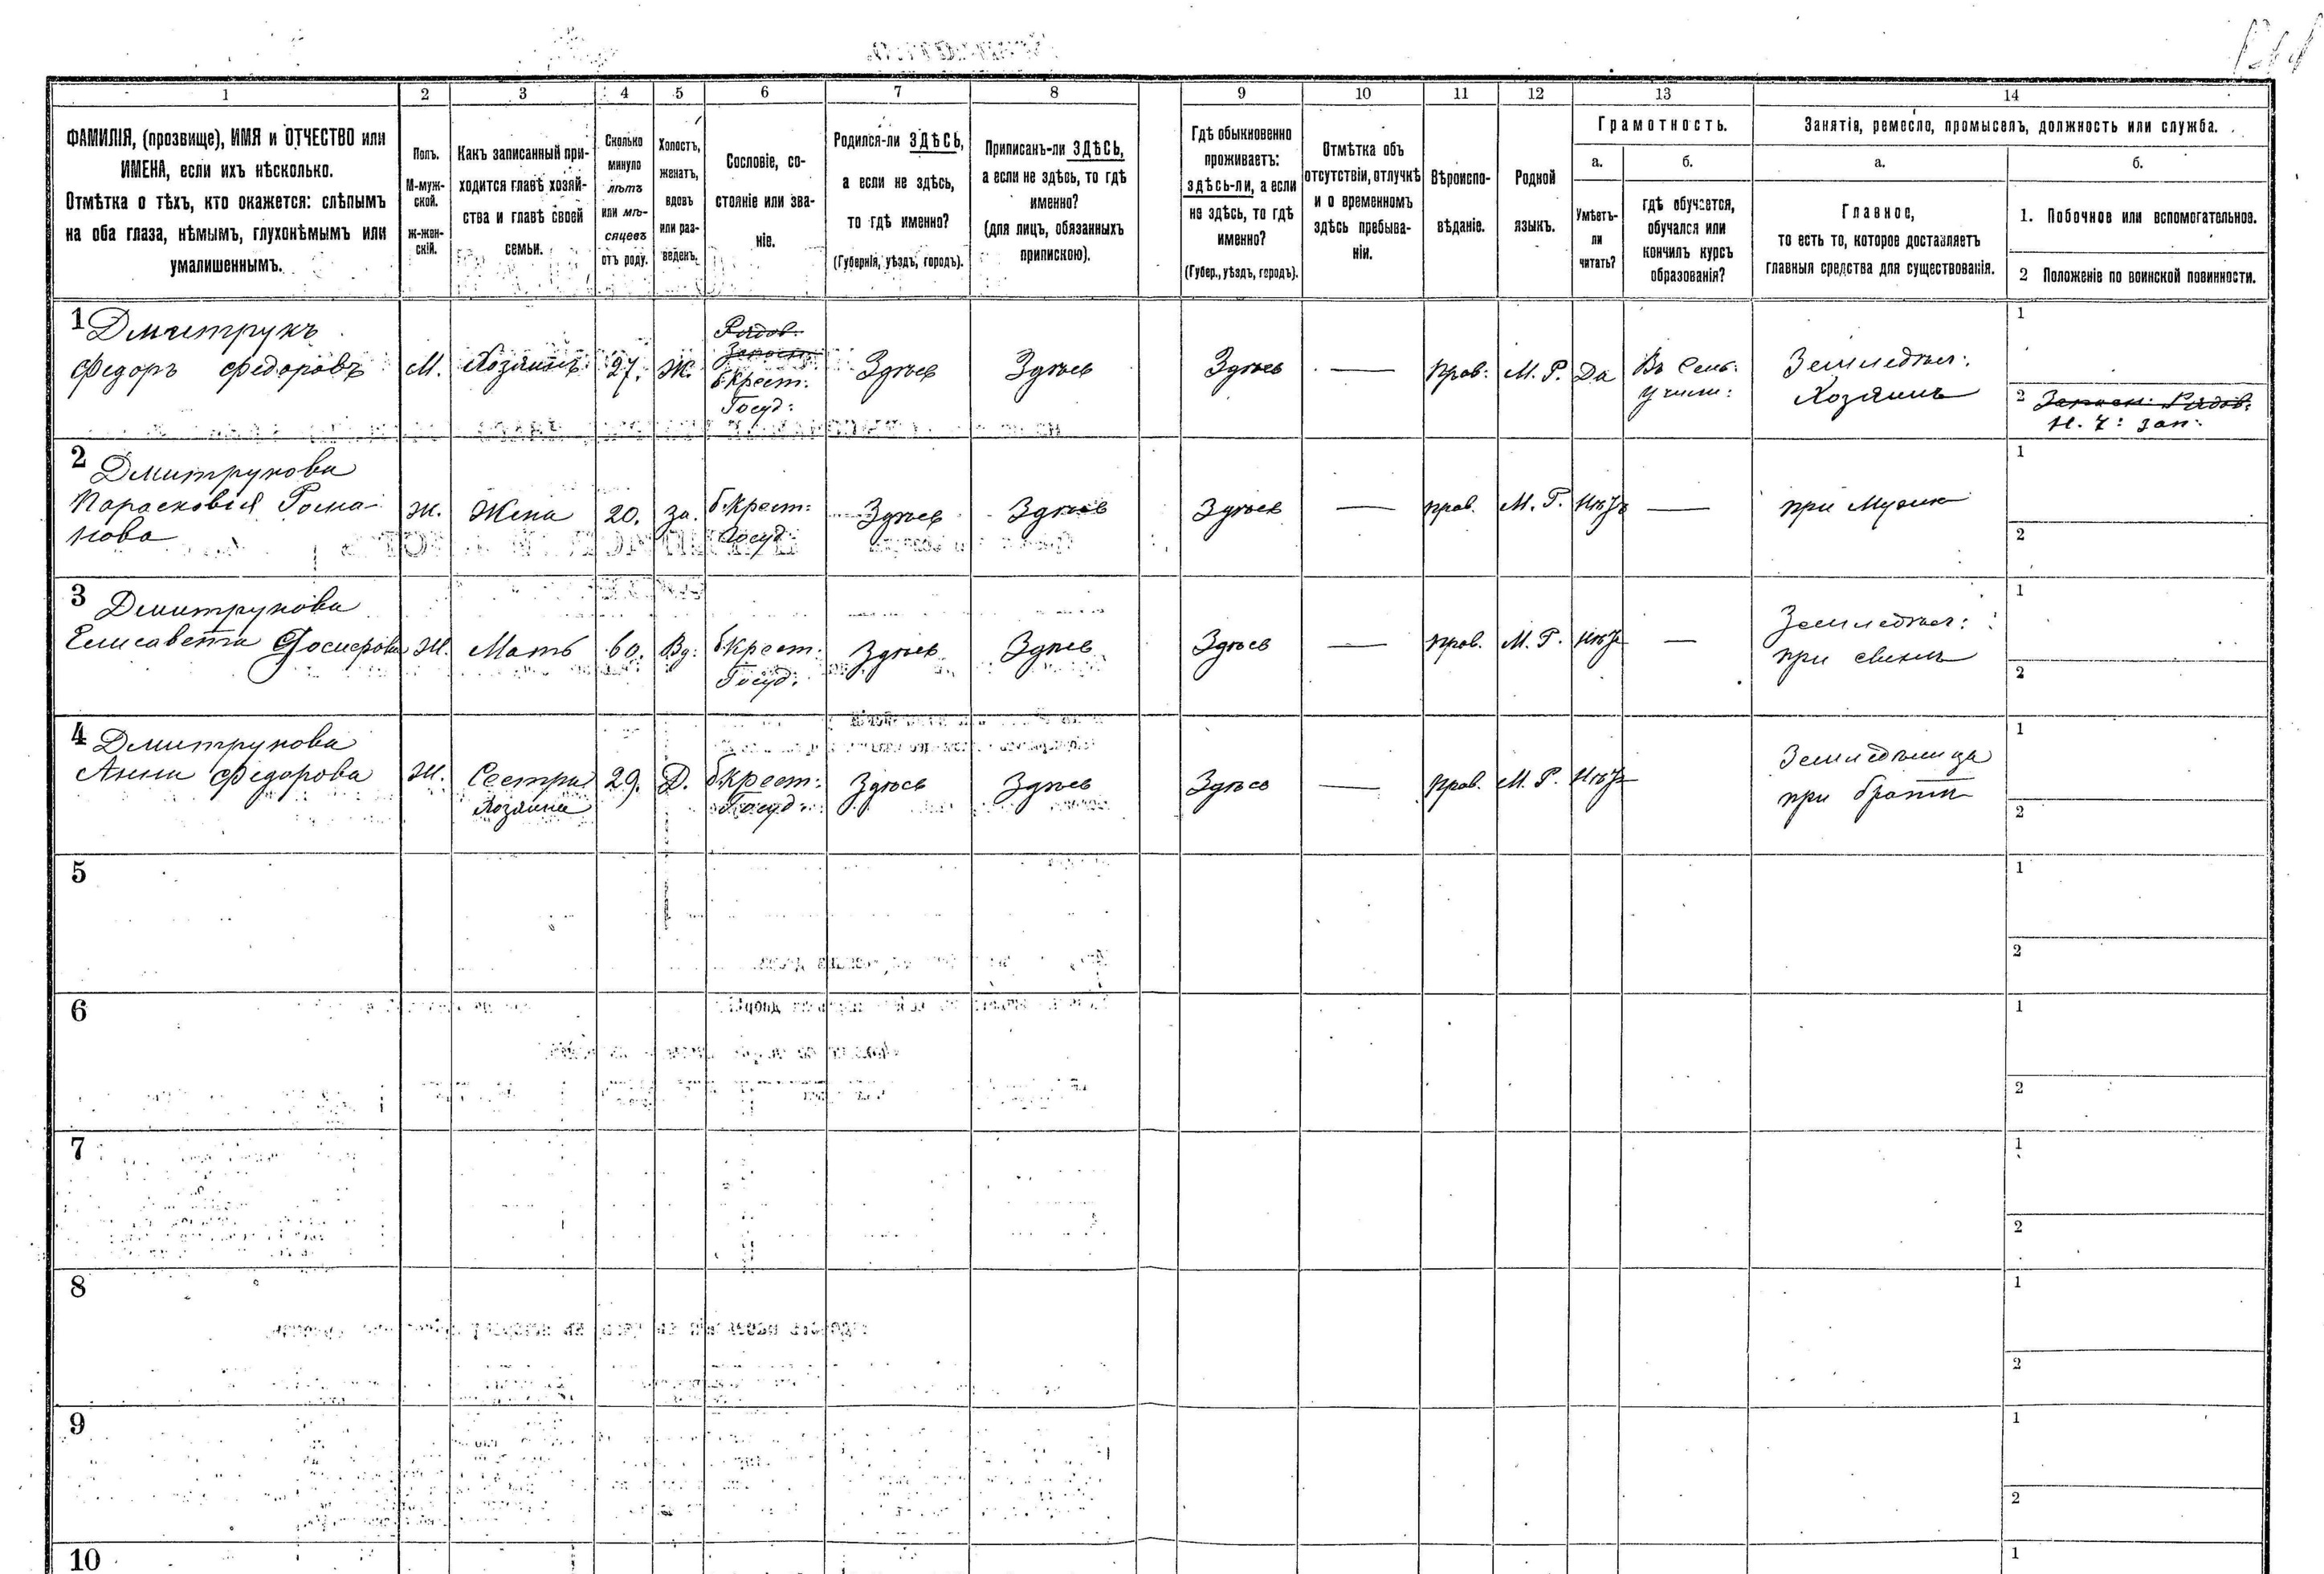 1 2 3 4 5 6 7 8 9 10 11 12 13 14
ФАМИЛІЯ, (прозвище), ИМЯ и ОТЧЕСТВО или
ИМЕНА, если ихъ нѣсколько.
Отмѣтка о тѣхъ, кто окажется: слѣпымъ
на оба глаза, нѣмымъ, глухонѣмымъ или
умалишеннымъ.
Полъ.
М-муж-
ской.
Ж-жен-
скій.
Какъ записанный при-
ходится главѣ хозяй-
ства и главѣ своей
семьи.
Сколько
минуло
лѣтъ
или мѣ-
сяцевъ
отъ роду.
Холостъ,
женатъ,
вдовъ
или раз-
веденъ.
Сословіе, со-
стояніе или зва-
ніе.
Родился-ли ЗДѢСЬ,
а если не здѣсь,
то гдѣ именно?
(Губернія, уѣздъ, городъ).
Приписанъ-ли ЗДѢСЬ,
а если не здѣсь, то гдѣ
именно?
(для лицъ, обязанныхъ
припискою).
Гдѣ обыкновенно
проживаетъ:
здѣсь-ли, а если
не здѣсь, то гдѣ
именно?
(Губер., уѣздъ, городъ).
Отмѣтка объ
отсутствіи, отлучкѣ
и о временномъ
здѣсь пребыва-
ніи.
Вѣроиспо-
вѣданіе.
Родной
языкъ.
Грамотность.
а.
Умѣетъ-
ли
читать?
б.
гдѣ обучается,
обучался или
кончилъ курсъ
образованія?
Занятія, ремесло, промыселъ, должность или служба.
а.
Главное,
то есть то, которое доставляетъ
главныя средства для существованія.
б.
1. Побочное или вспомогательное.
2 Положеніе по воинской повинности.
1 Дмитрукъ
Федоръ Федоровъ
М.
Хозяинъ
27.
Ж.
Рядов.
Запасн.
б.Крест:
Госуд:
Здѣсь
Здѣсь
Здѣсь
—
Прав:
М. Р.
Да
Въ Сель:
Учили:
Земледѣл:
Хозяинъ
1
2 Запасн: Рядов:
Н. Ч: зап:
2 Дмитрукова
Парасковія Рома-
нова
Ж.
Жена
20.
За.
б.Крест:
Госуд:
Здѣсь
Здѣсь
Здѣсь
—
Прав.
М. Р.
Нѣтъ
—
при Мужѣ
1
2
3 Дмитрукова
Елисавета
Ж.
Мать
60.
Вд:
б.Крест:
Госуд:
Здѣсь
Здѣсь
Здѣсь
—
Прав.
М. Р.
Нѣтъ
—
Земледѣл:
при сынѣ
1
2
4 Дмитрукова
Анна Федорова
Ж.
Сестра
Хозяина
29.
Д.
б.Крест:
Госуд:
Здѣсь
Здѣсь
Здѣсь
—
Прав.
М. Р.
Нѣтъ
Земледѣлица
при братѣ
1
2
5
1
2
6
1
2
7
1
2
8
1
2
9
1
2
10
1